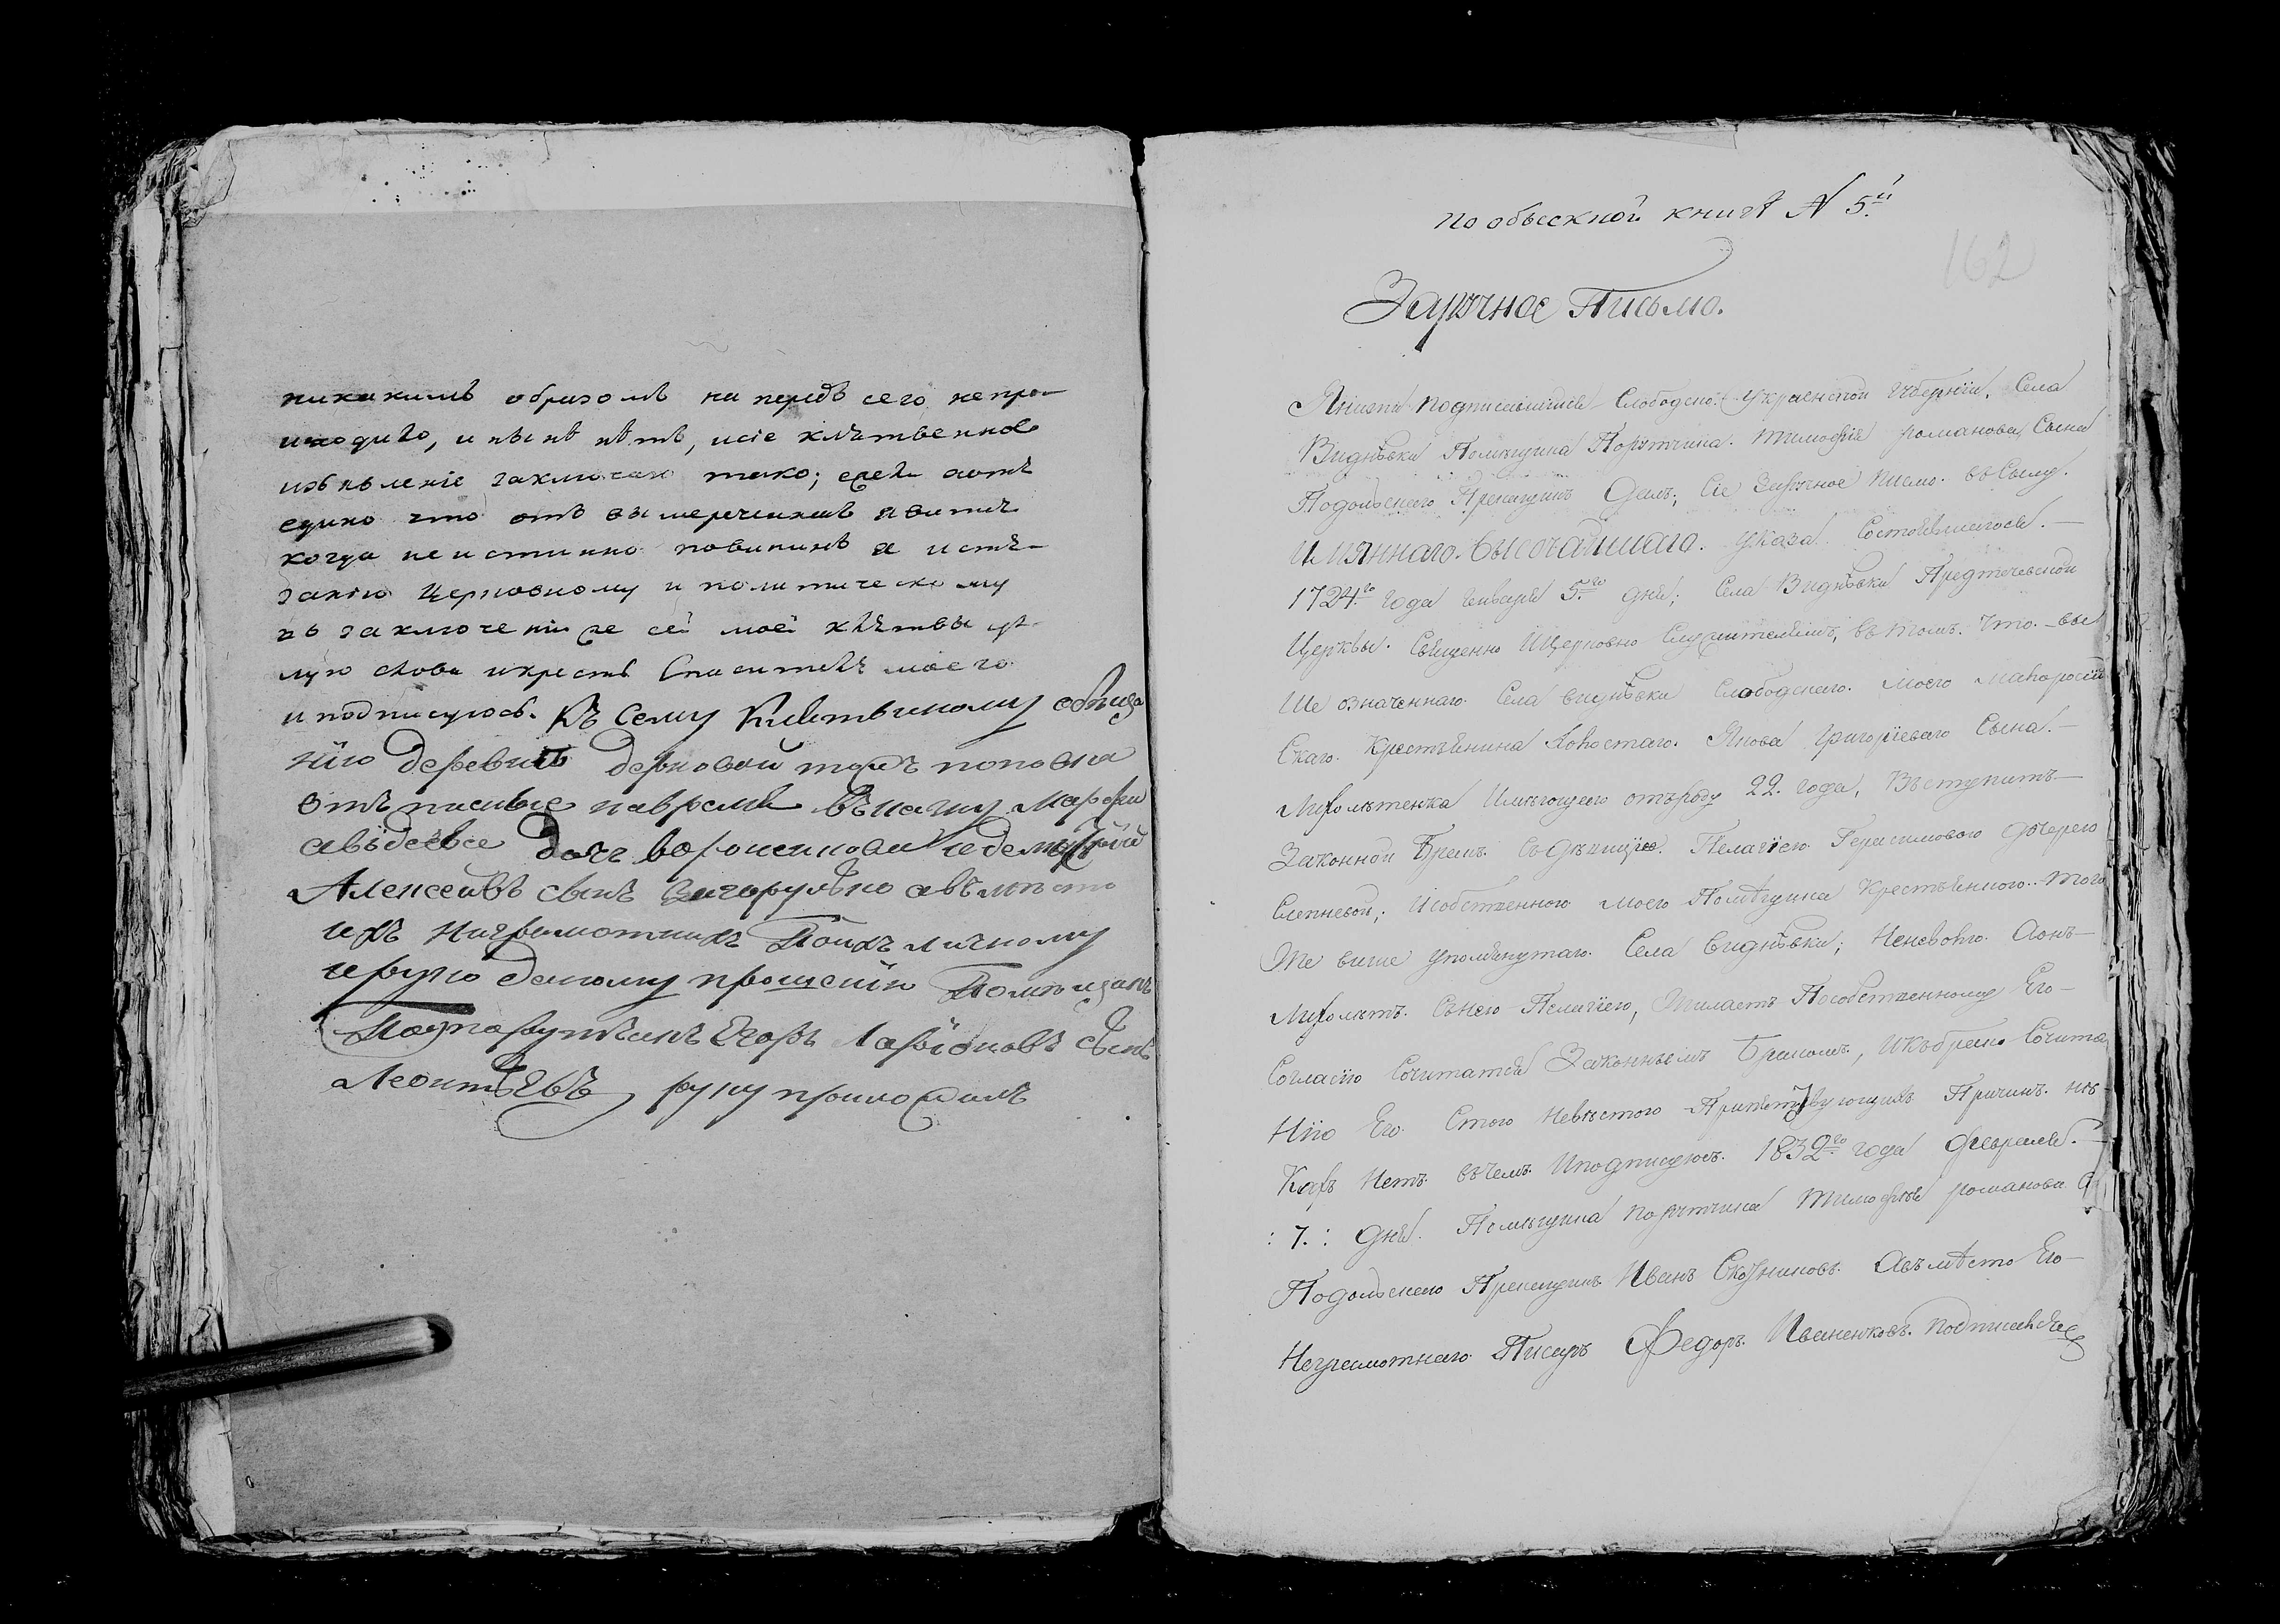 никакимъ образомъ на передъ сего непро-
изходило, и нынѣ нѣтъ, и сіе клятвенное
изъявленіе заключаю тако; ежели хотя
едино что отъ вышереченнаго явится
когда не истинно повиненъ я истя-
занію церковному и политическому
въ заключеніи же сеі моеі клятвы цѣ-
лую слова и крестъ Спасителя моего
и подписуюсь. Къ Сему Клятвеному обѣща
нію деревни дерновой тожъ поповка
Отъ писные
авъдеевъ дочъ
Алексеевъ сынъ авъместо
ихъ ниграмотнихъ Поихъ личному
ирукоданому прошенію Помѣщикъ
Подпарутчикъ Егоръ Ларіоновъ сынъ
Леонтьевъ руку приложилъ
по обыскной книгѣ N 5й
162
Заручное Письмо.
Янижа подписавшися Слободско: Украенской Губерніи, Села
Виднѣвки Помѣщика Порутчика. Тимофія романова Сына
Подольскаго Прекащикъ Далъ; Сіе Заручное писмо. въ Силу.
Имяннаго. Высочайшаго. Указа. Состоявшагося.
1724го года Генваря 5го дня; Села Виднѣвки Предтечевской
Церквы. Священно Ицерковно Служителямъ, въ томъ. Что. вы
Ше означеннаго. Села виднѣвки Слободскаго. Моего малоросій
Скаго. Крестьянина холостаго. Якова Григоріеваго Сына.
Миколаенка Имѣющаго отъроду 22. года, Въступитъ
Законной Бракъ. Съдѣвицею. Пелагіею Герасимовою дочерею
Слепневой; Исобственною моего Помѣщика Крестьянкою.. того
Же више упомянутаго. Села Виднѣвки; Неневолю. Аонъ
Снею Пелагіею, Желаетъ Пособственному Его
Согласію Сочитатся Законнымъ Бракомъ, Икъбрако Сочита
Нію Его Стою Невѣстою Причинъ. ни
Кихъ Нетъ въчемъ Иподписуюсь. 1832го года февраля.
: 7. : дня. Помѣщика порутчика Тимофия романова
Подольскаго Прекащикъ Иванъ Авъмѣсто Его
Неграмотнаго Писаръ Федоръ. Иваненковъ. подписалъся